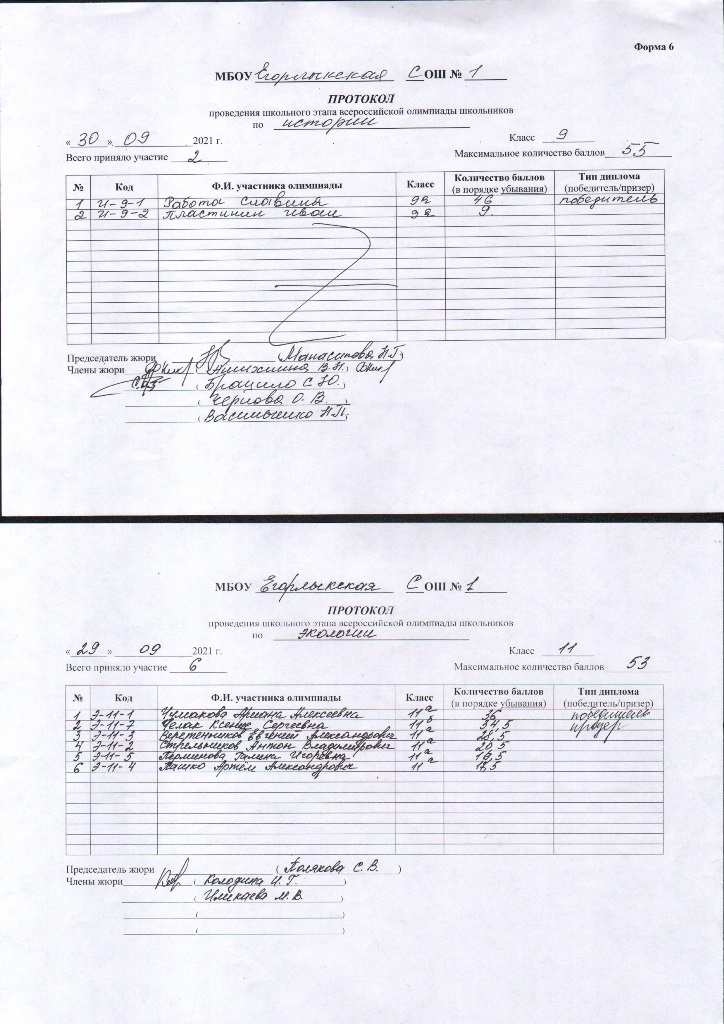 Форма 6
МБОУ Егорлыкская СОШ № 1
ПРОТОКОЛ
проведения школьного этапа всероссийской олимпиады школьников
по истории
« 30 » 09 2021 г. Класс 9
Всего приняло участие 2 Максимальное количество баллов 55
№ Код Ф.И. участника олимпиады Класс Количество баллов (в порядке убывания) Тип диплома (победитель/призер)
1 И-9-1 Работа 9а 46 победитель
2 И-9-2 Пластинин Иван 9а 9
Председатель жюри Манасипова Н.Г.
Члены жюри ( В.Н.)
( Брацило С.Ю. )
( Чернова О.В. )
( Н.П. )
МБОУ Егорлыкская СОШ № 1
ПРОТОКОЛ
проведения школьного этапа всероссийской олимпиады школьников
по экологии
« 29 » 09 2021 г. Класс 11
Всего приняло участие 6 Максимальное количество баллов 53
№ Код Ф.И. участника олимпиады Класс Количество баллов (в порядке убывания) Тип диплома (победитель/призер)
1 Э-11-1 Чумакова Ариана Алексеевна 11а 36 победитель
2 Ксения Сергеевна 34,5 призер
3 Э-11-3 Веретенников Евгений Александрович 11а
4 Э-11-2 Стрельников Антон Владимирович 11а 20,5
5 Э-11-5 Галина Игоревна 11а
6 Э-11-4 Пашко Артём Александрович 11
Председатель жюри ( Полякова С.В. )
Члены жюри ( Колодина И.Г. )
( М.В. )
( )
( )